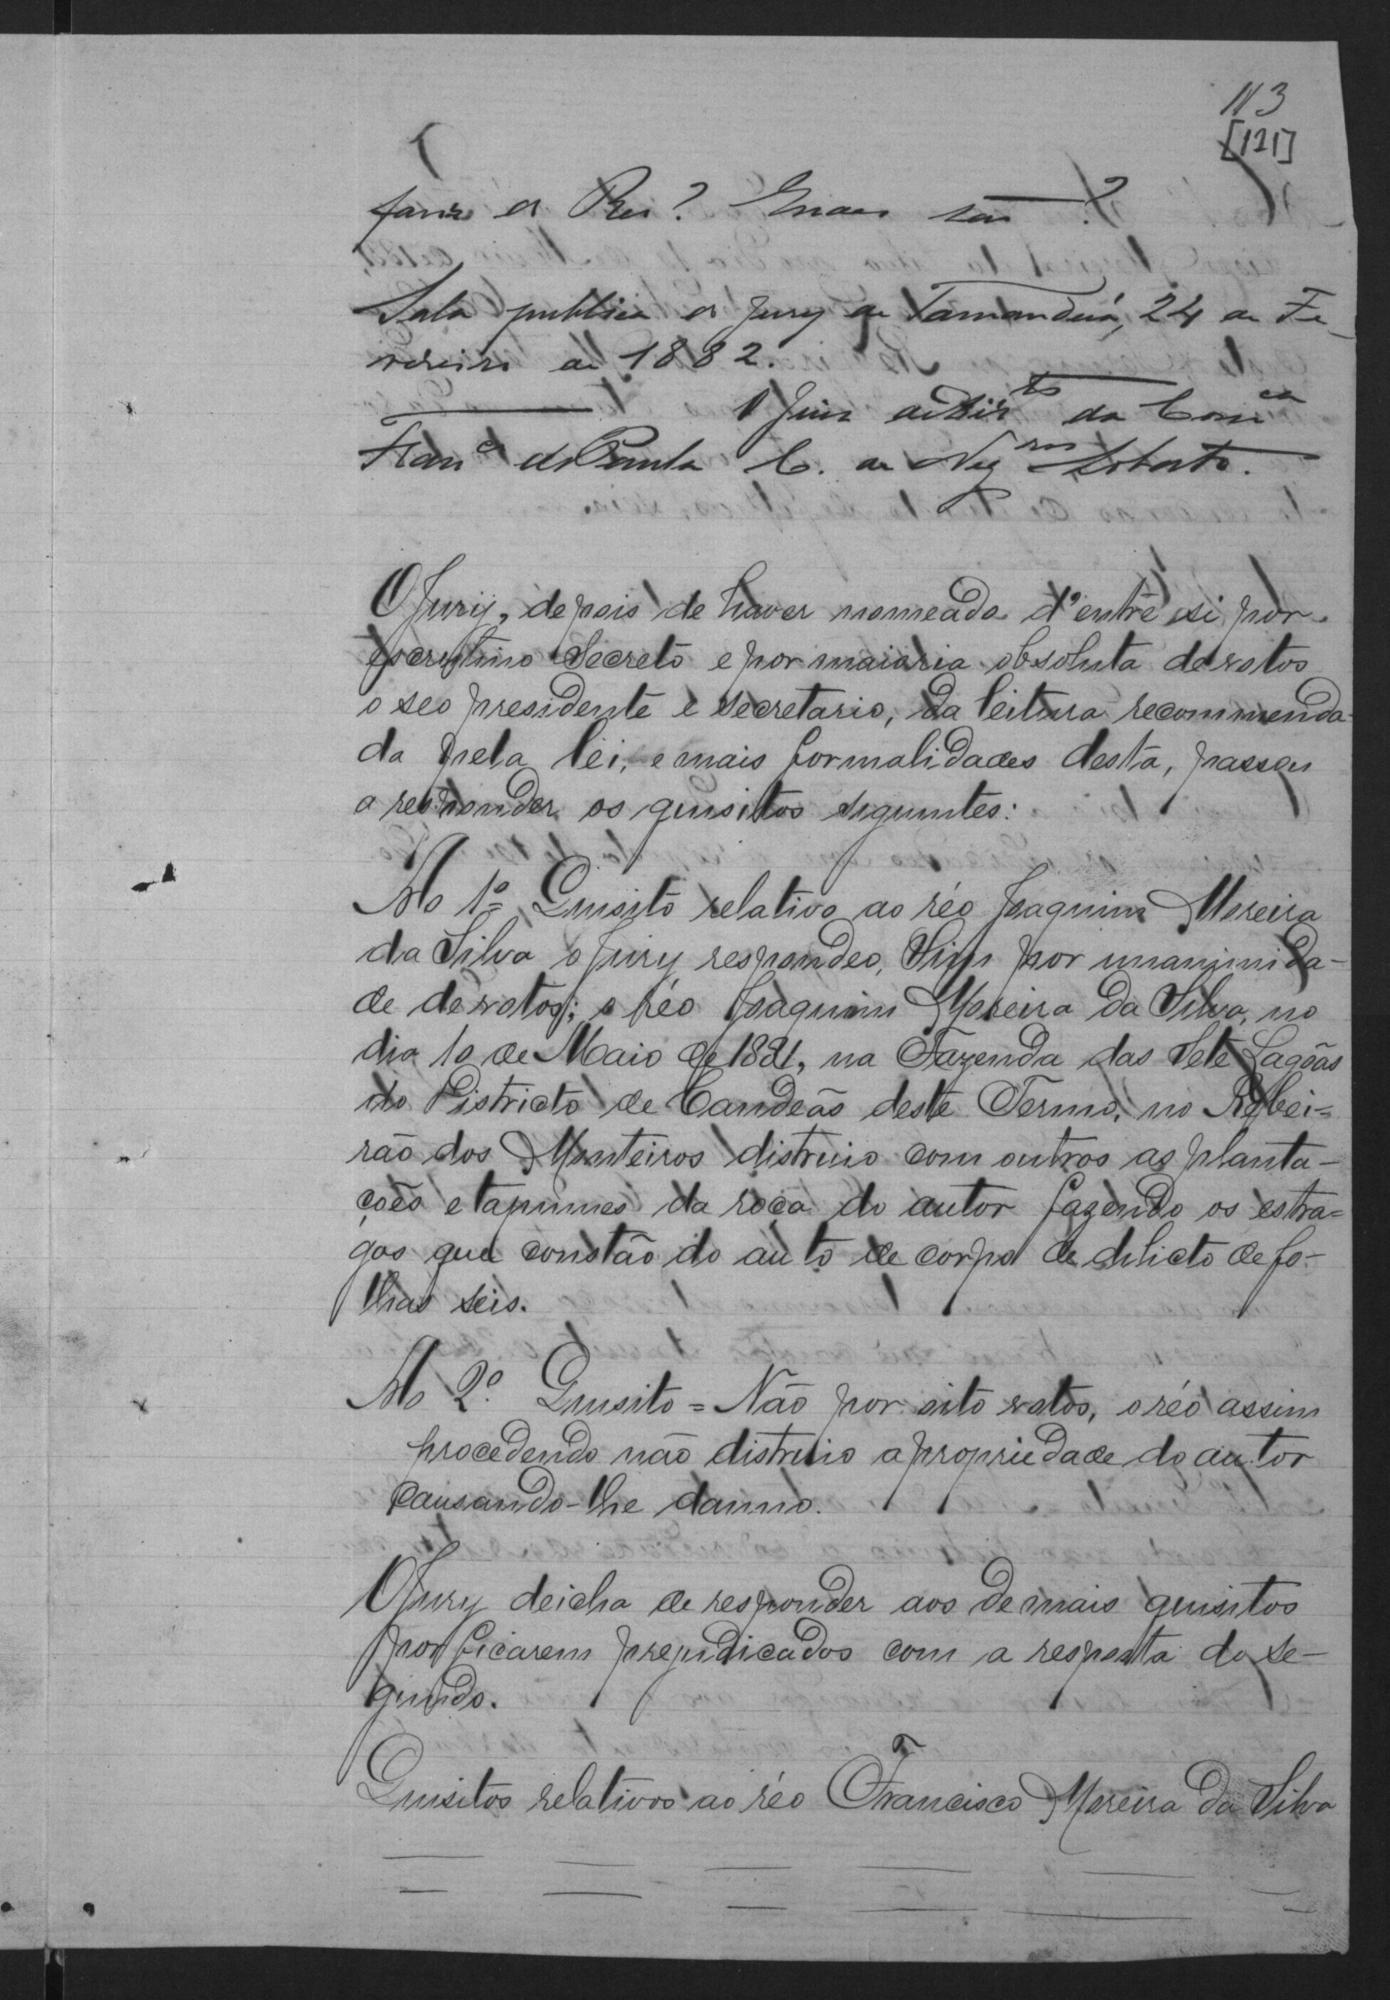 113
[121]
favor do Réo? Quaes são?
Sala publica do Jury de Tamanduá, 24 de Fe-
vereiro de 1882.
O Juiz de Dir.to da Com.ca
Fran.co de Paula C. de Neg.ros Lobato.
O Jury, depois de haver nomeado d'entre si por
escrutinio Secreto e por maiaria absoluta de votos
o seo presidente e secretario, da leitura recommenda-
da pela lei, e mais formalidades desta, passou
a responder os quisitos seguintes:
Ao 1º Quisito relativo ao réo Joaquim Moreira
da Silva o Jury respondeo, Sim por unanimida-
de de votos; o réo Joaquim Moreira da Silva, no
dia 10 de Maio de 1881, na Fazenda das Sete Lagôas
do Districto de Candeãs deste Termo, no Ribei=
rão dos Monteiros distruio com outros as planta-
ções e tapumes da roça do autor fazendo os estra=
gos que constão do auto de corpo de delicto de fo-
lhas seis.
Ao 2º Quisito = Não por oito votos, o réo assim
procedendo não distruio a propriedade do autor
causando-lhe damno.
O Jury deicha de responder aos demais quisitos
por ficarem prejudicados com a resposta do se-
gundo.
Quisitos relativos ao réo Francisco Moreira da Silva